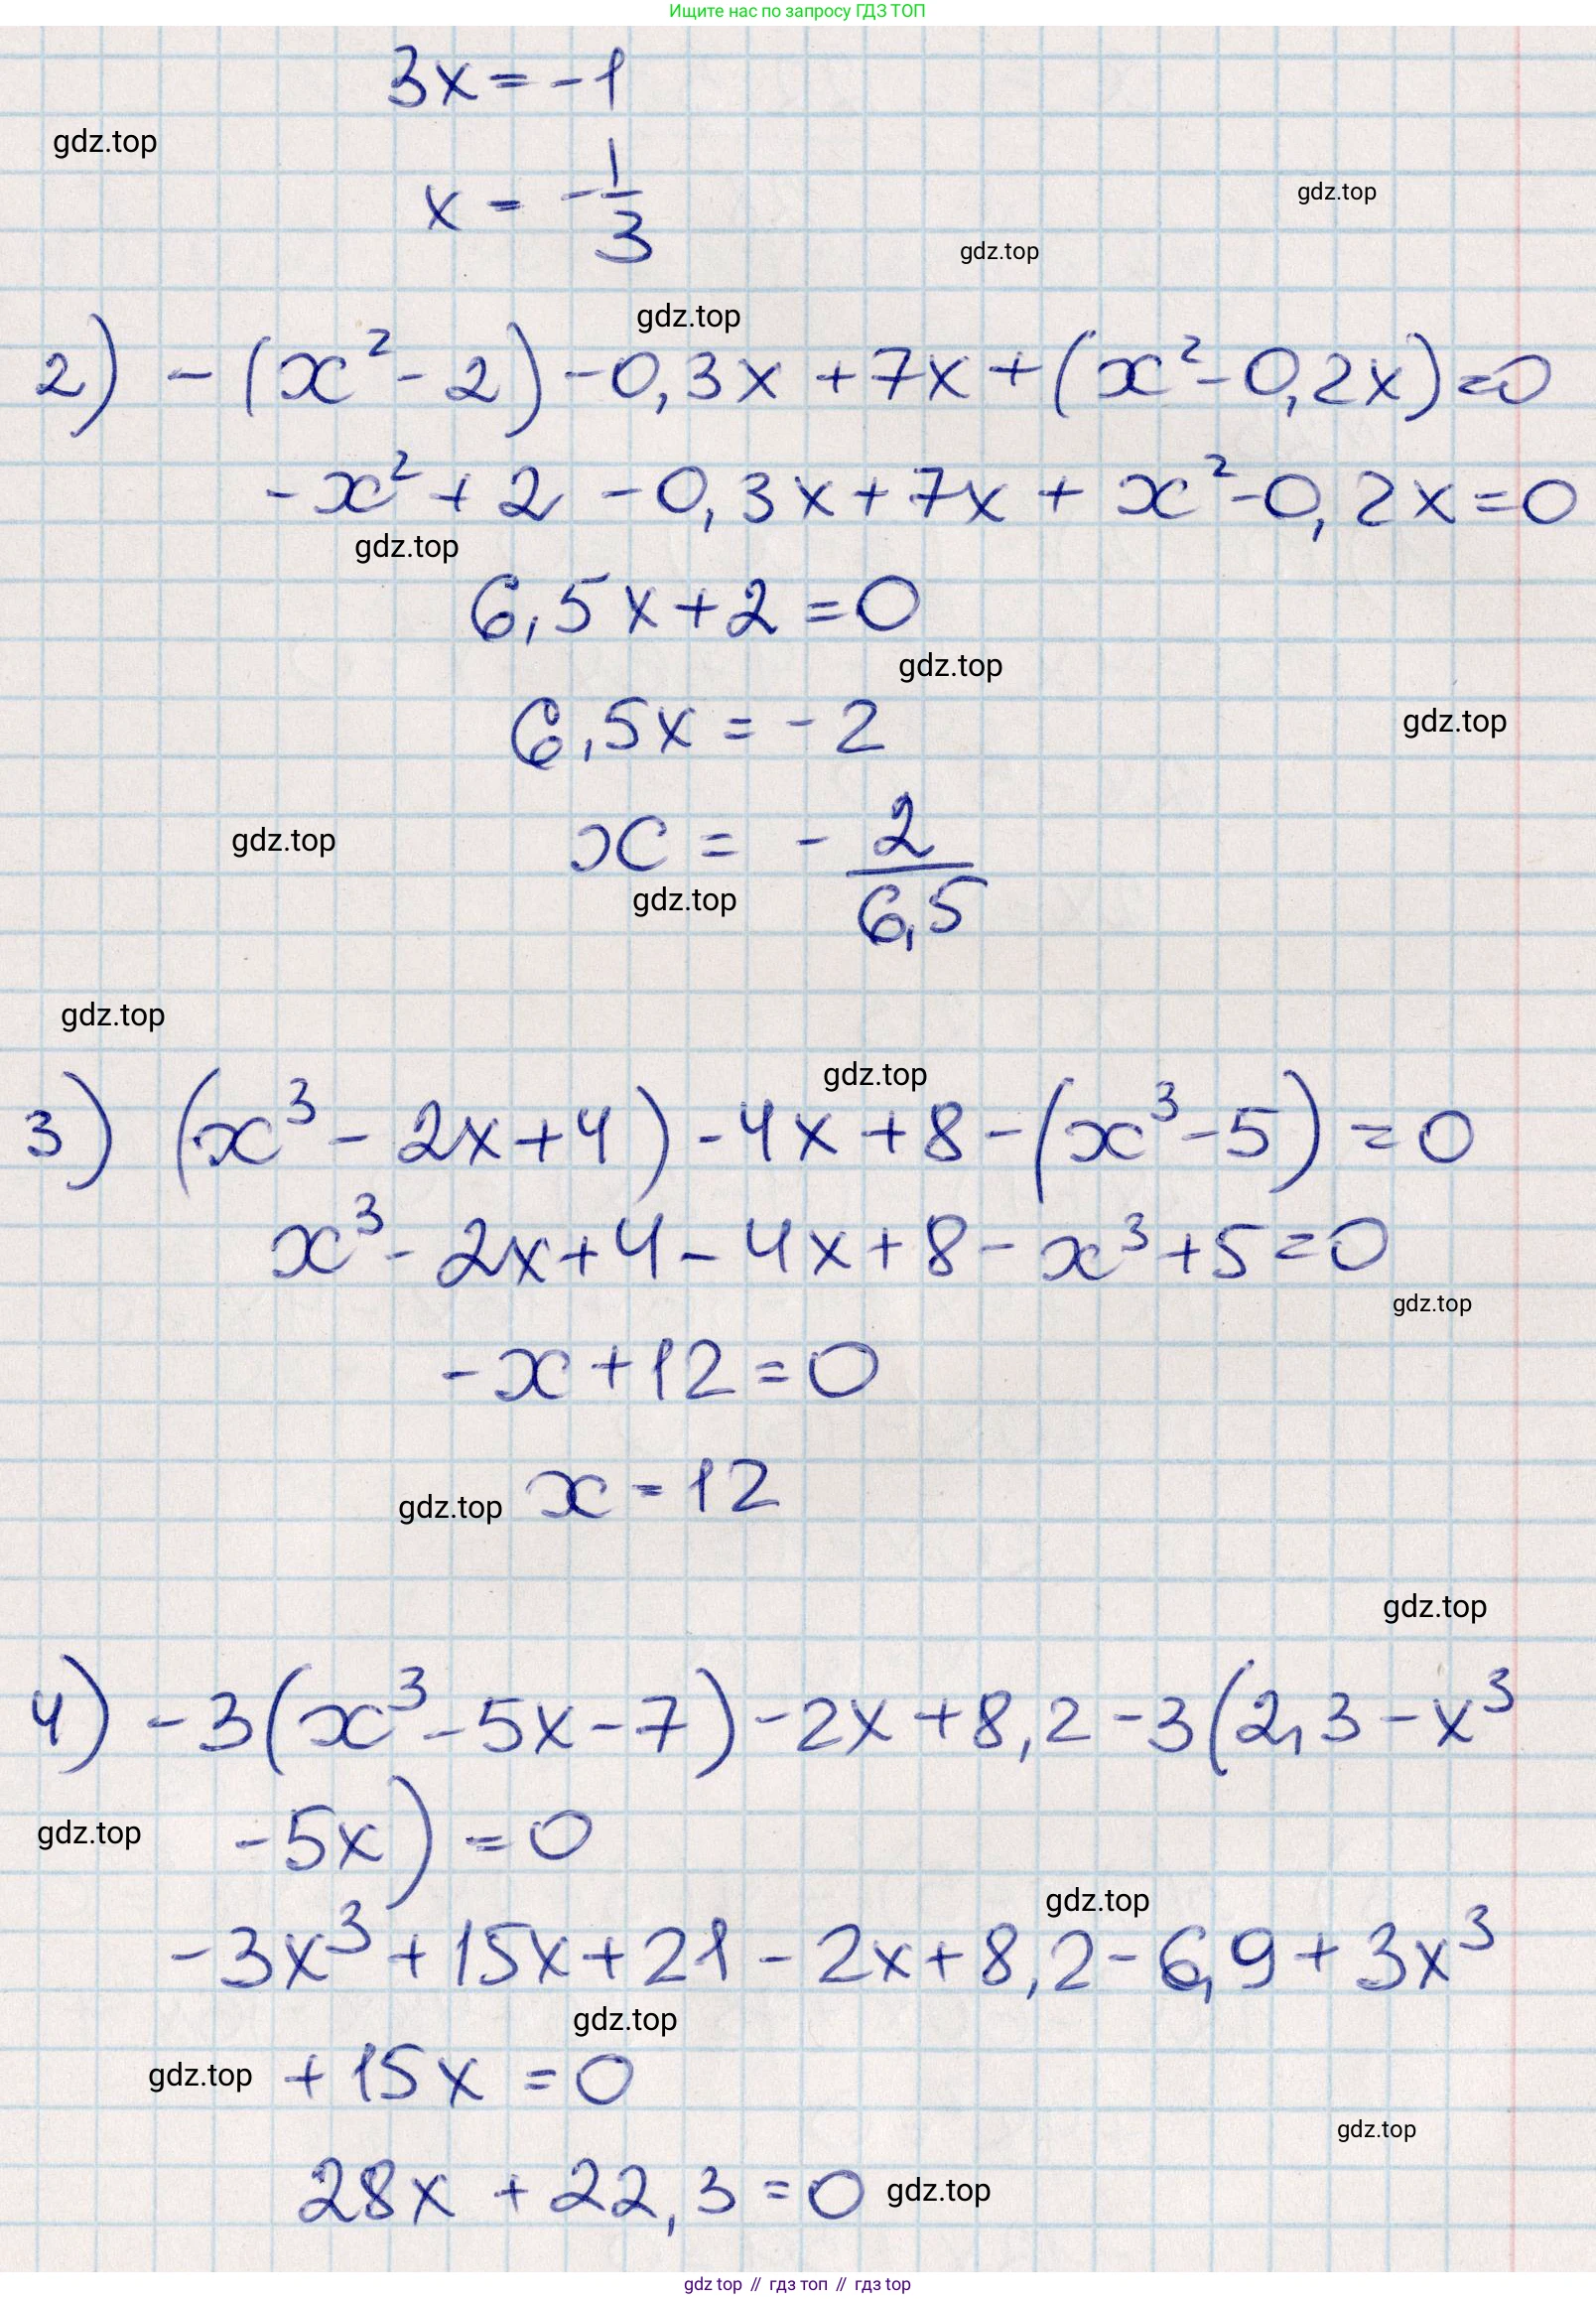 Ищите нас по запросу ГДЗ ТОП
3x = -1
gdz.top
x = -1/3
gdz.top
gdz.top
gdz.top
2) -(x² - 2) - 0,3x + 7x + (x² - 0,2x) = 0
-x² + 2 - 0,3x + 7x + x² - 0,2x = 0
gdz.top
6,5x + 2 = 0
gdz.top
6,5x = -2
gdz.top
gdz.top
x = -2/6,5
gdz.top
gdz.top
gdz.top
3) (x³ - 2x + 4) - 4x + 8 - (x³ - 5) = 0
x³ - 2x + 4 - 4x + 8 - x³ + 5 = 0
gdz.top
-x + 12 = 0
gdz.top x = 12
gdz.top
4) -3(x³ - 5x - 7) - 2x + 8,2 - 3(2,3 - x³
gdz.top -5x) = 0
gdz.top
-3x³ + 15x + 21 - 2x + 8,2 - 6,9 + 3x³
gdz.top
gdz.top + 15x = 0
gdz.top
28x + 22,3 = 0 gdz.top
gdz top // гдз топ // гдз top